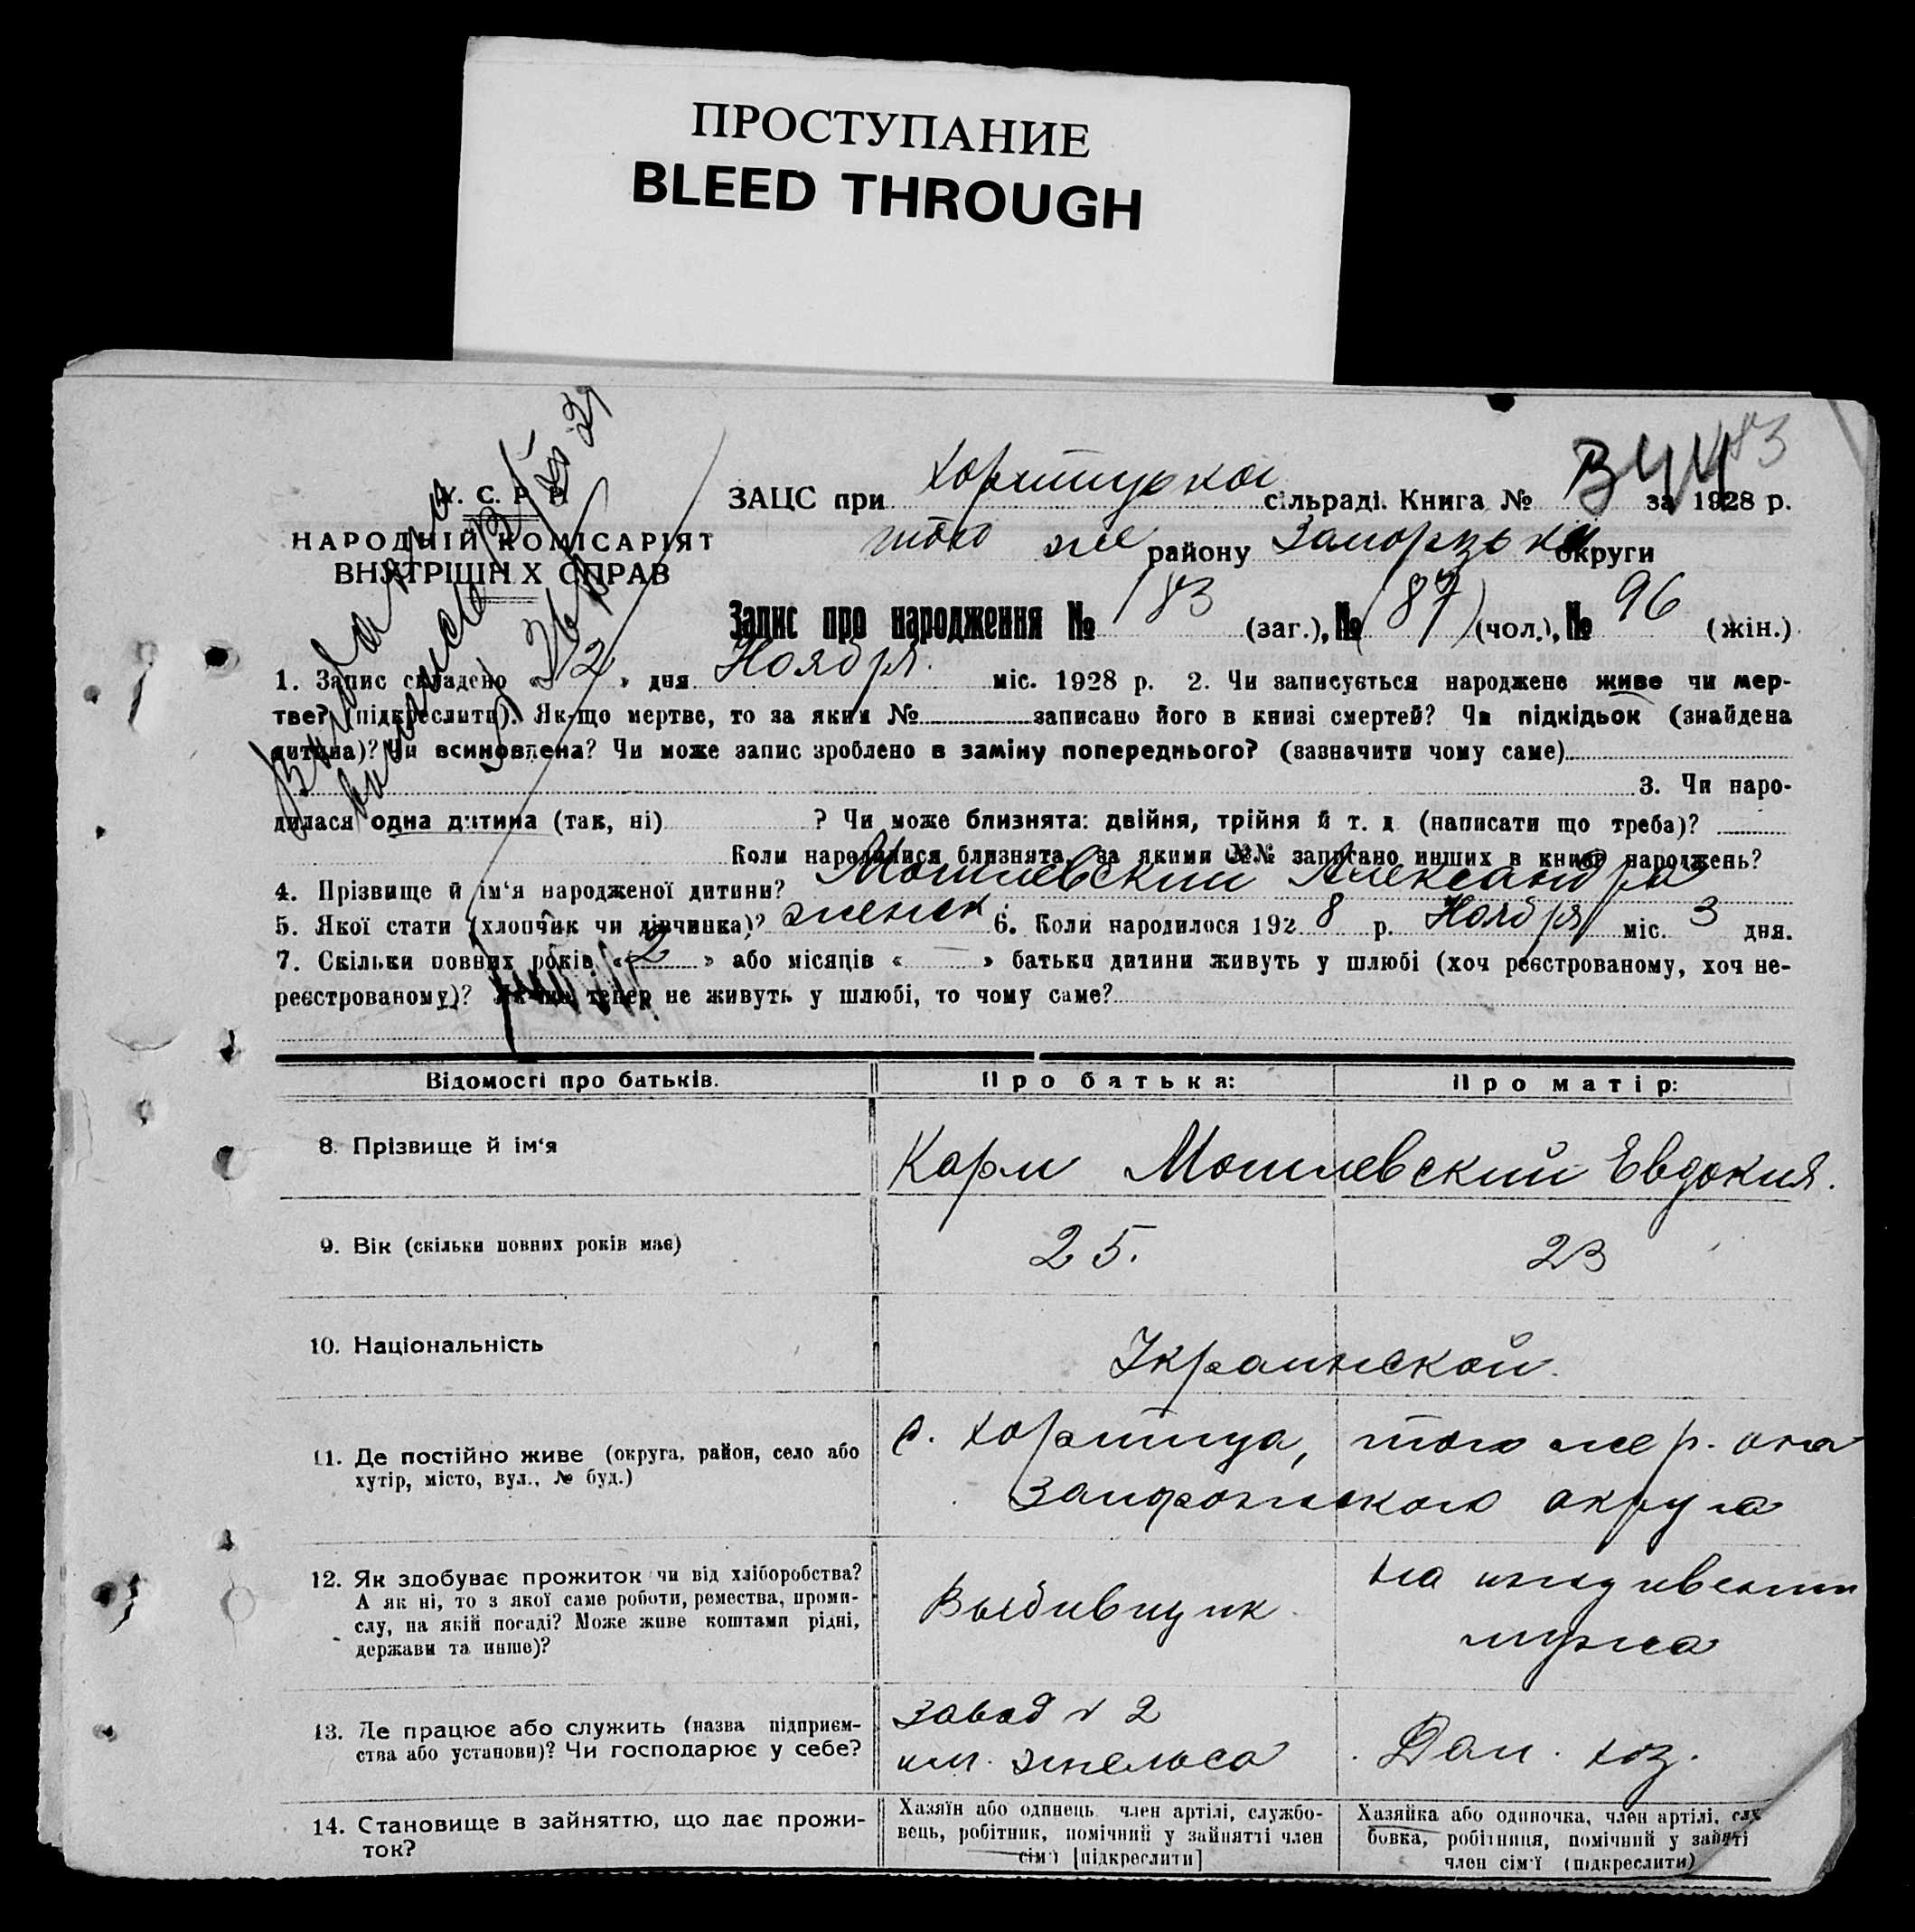 ПРОСТУПАНИЕ
BLEED THROUGH
183
У. С. Р. Р.
НАРОДНІЙ КОМІСАРІЯТ
ВНУТРІШНІХ СПРАВ
ЗАЦС при Хортицької сільраді. Книга № за 1928 р.
того же району Запорізької округи
Запис про народження № 183 (заг.), № (87) (чол.), № 96 (жін.)
1. Запис складено « 12 » дня Ноября міс. 1928 р. 2. Чи записується народжене живе чи мер-
тве? (підкреслити). Як-що мертве, то за яким № записано його в книзі смертей? Чи підкідьок (знайдена
дитина)? Чи всиновлена? Чи може запис зроблено в заміну попереднього? (зазначити чому саме)
3. Чи наро-
дилася одна дитина (так, ні) ? Чи може близнята: двійня, трійня й т. д. (написати що треба)?
Коли народилися близнята, за якими №№ записано инших в книзі народжень?
4. Прізвище й ім'я народженої дитини? Могилевский Александра
5. Якої стати (хлопчик чи дівчинка)? женск. 6. Коли народилося 1928 р. Ноября міс. 3 дня.
7. Скільки повних років « 2 » або місяців « — » батьки дитини живуть у шлюбі (хоч реєстрованому, хоч не-
реєстрованому)? Як-що тепер не живуть у шлюбі, то чому саме?
Відомості про батьків. Про батька: Про матір:
8. Прізвище й ім'я Карп Могилевский Евдокия.
9. Вік (скільки повних років має) 25. 23
10. Національність Украинской.
11. Де постійно живе (округа, район, село або
хутір, місто, вул., № буд.)
с. Хортица, того же р-она
Запорожского округа
12. Як здобуває прожиток чи від хліборобства?
А як ні, то з якої саме роботи, ремества, проми-
слу, на якій посаді? Може живе коштами рідні,
держави та инше)?
Выбивщик
На иждивении
мужа
13. Де працює або служить (назва підприєм-
ства або установи)? Чи господарює у себе?
завод № 2
им. Энгельса
Дом. хоз.
14. Становище в зайняттю, що дає прожи-
ток?
Хазяїн або одинець, член артілі, службо-
вець, робітник, помічний у зайнятті член
сім'ї [підкреслити]
Хазяйка або одиночка, член артілі, служ
бовка, робітниця, помічний у зайняті
член сім'ї (підкреслити)